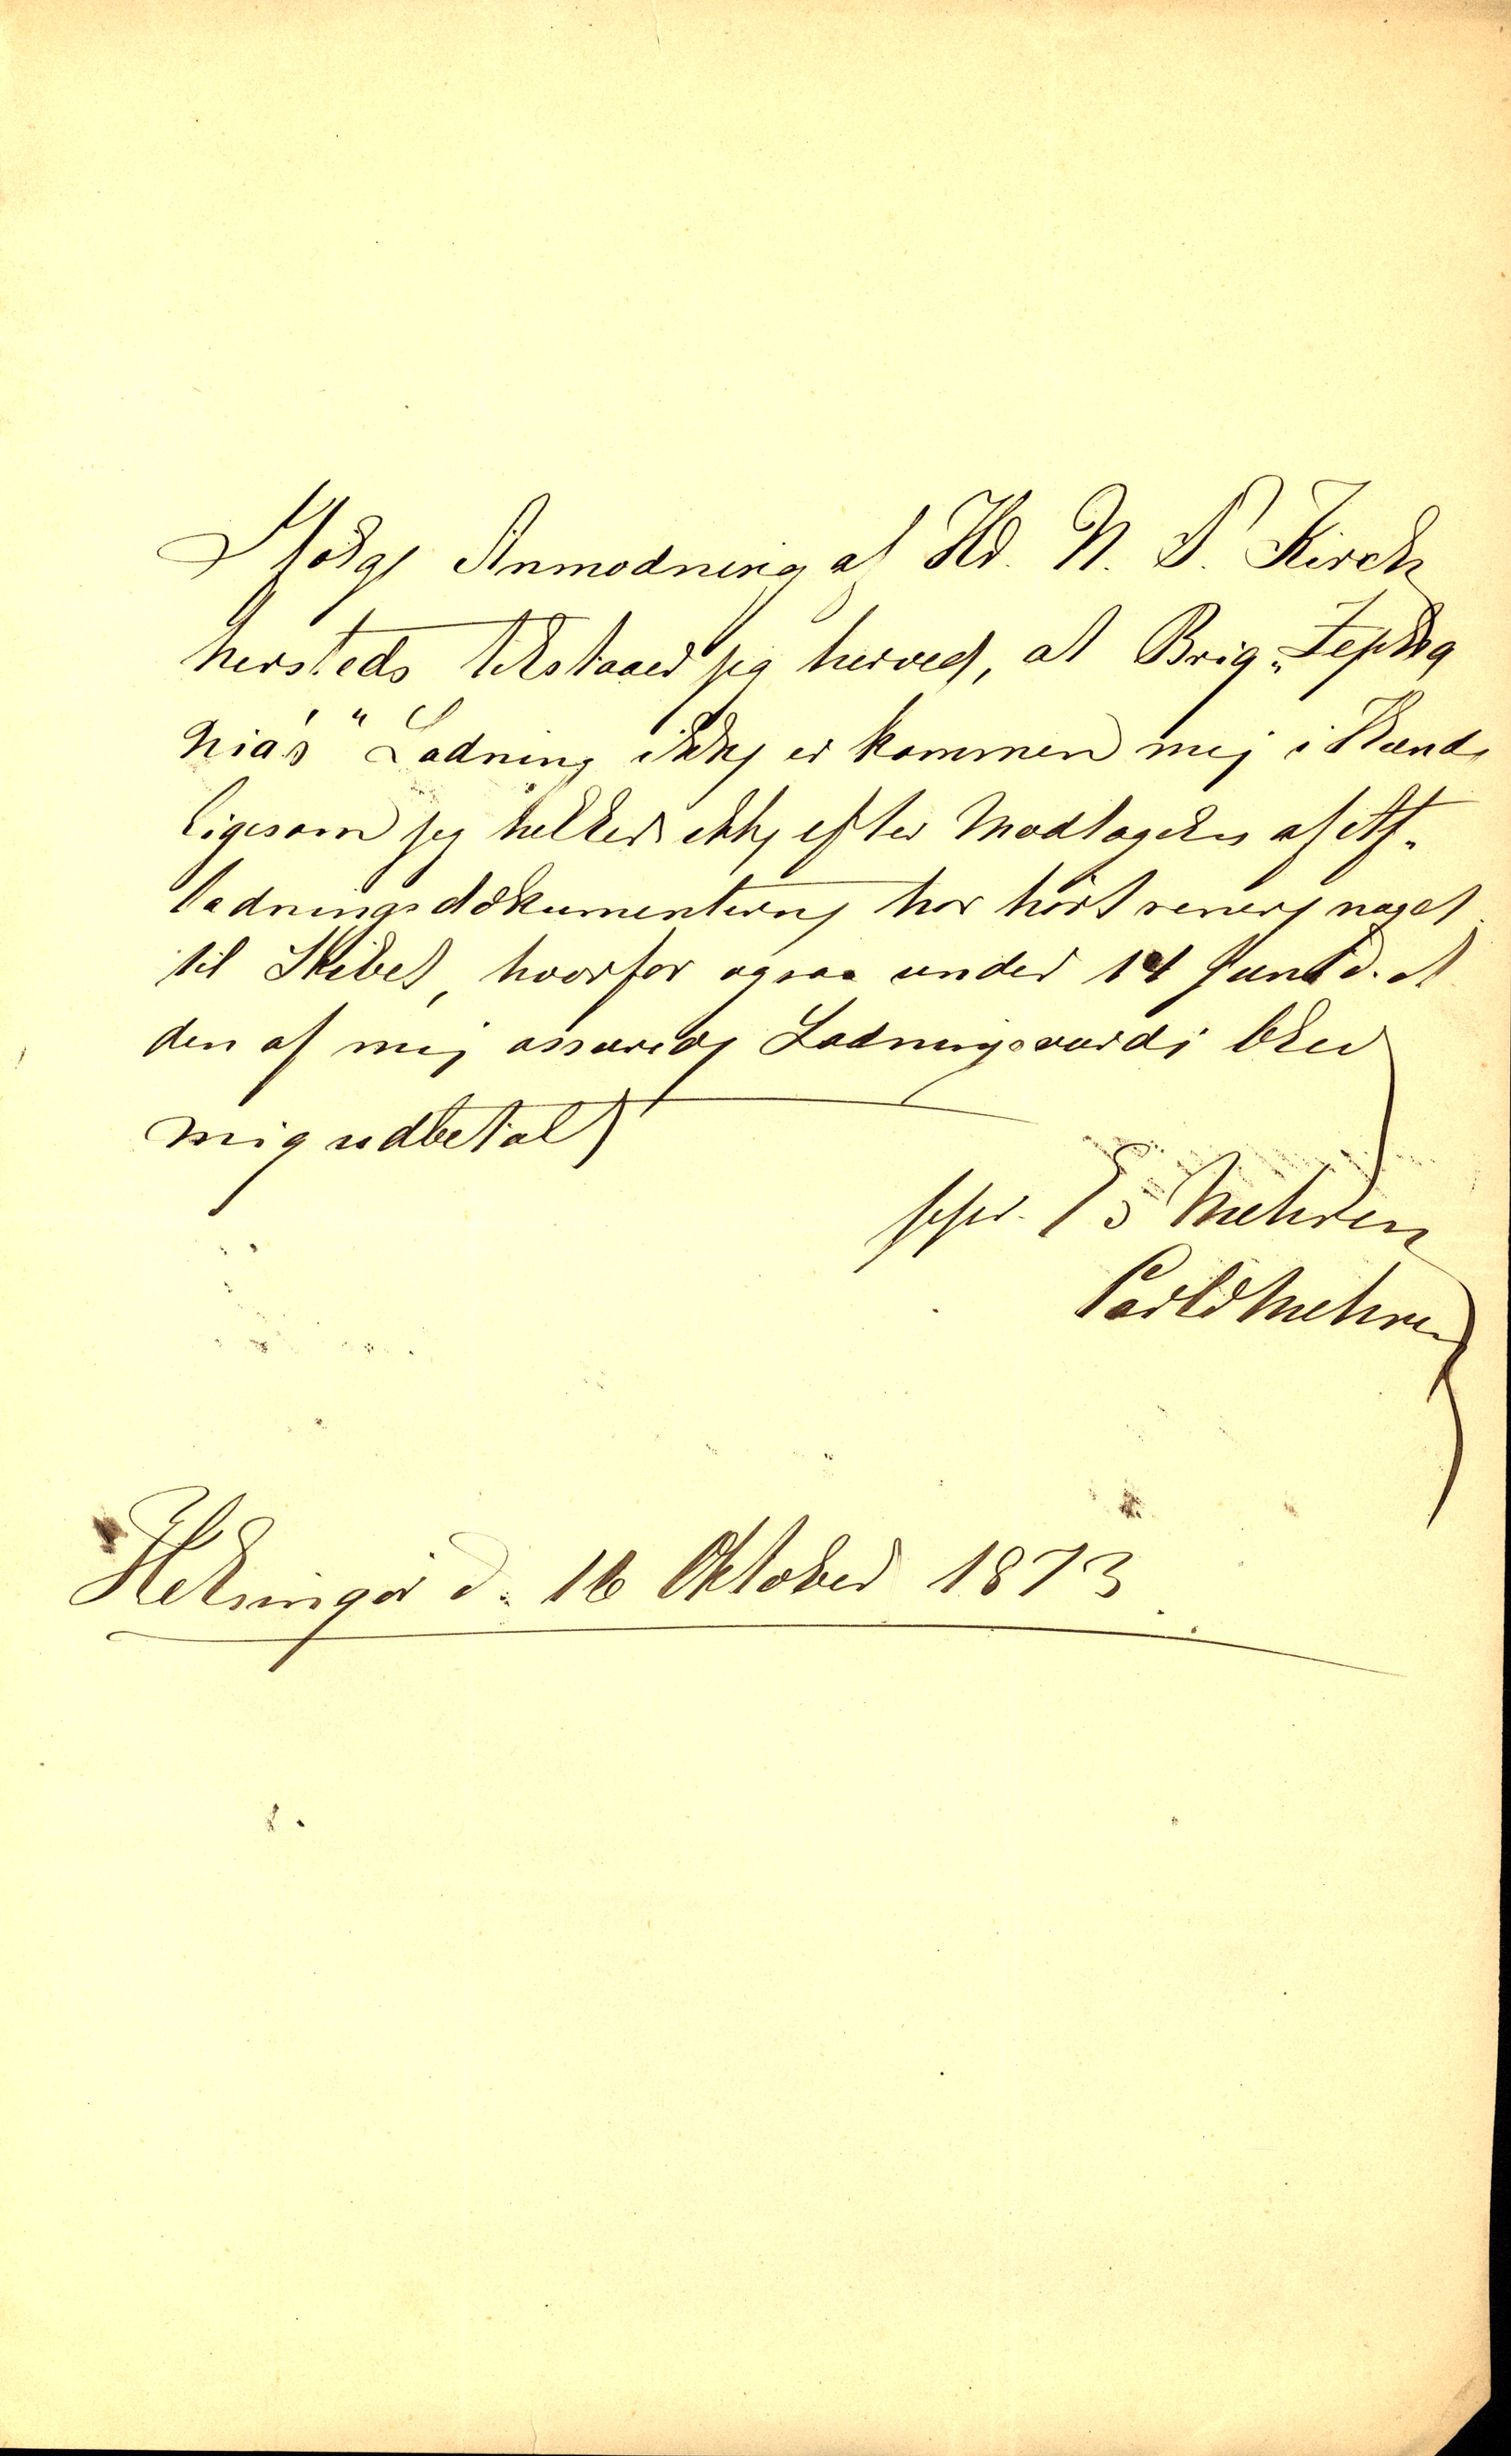 Ifølge Anmodning af Hr. N. P. Kirck
hersteds tilstaaer jeg herved, at Brig „Zepha
nia's“ Ladning ikke er kommen mig i Hænde
ligesom jeg heller ikke efter Modtagelsen af Af-
ladningsdokumenterne har hørt senere noget
til Skibet, hvorfor ogsaa under 14 Juni d. A
den af mig assurerede Ladningsværdi blev
mig udbetalt
ppr. Mehren
Mehren
Helsingør d. 16 Oktober 1873.